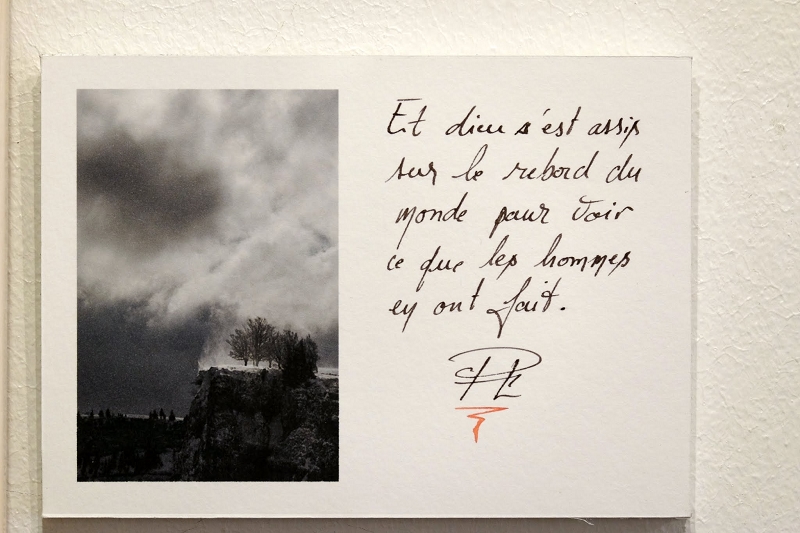 Et dieu s'est assis
sur le rebord du
monde pour voir
ce que les hommes
en ont fait.